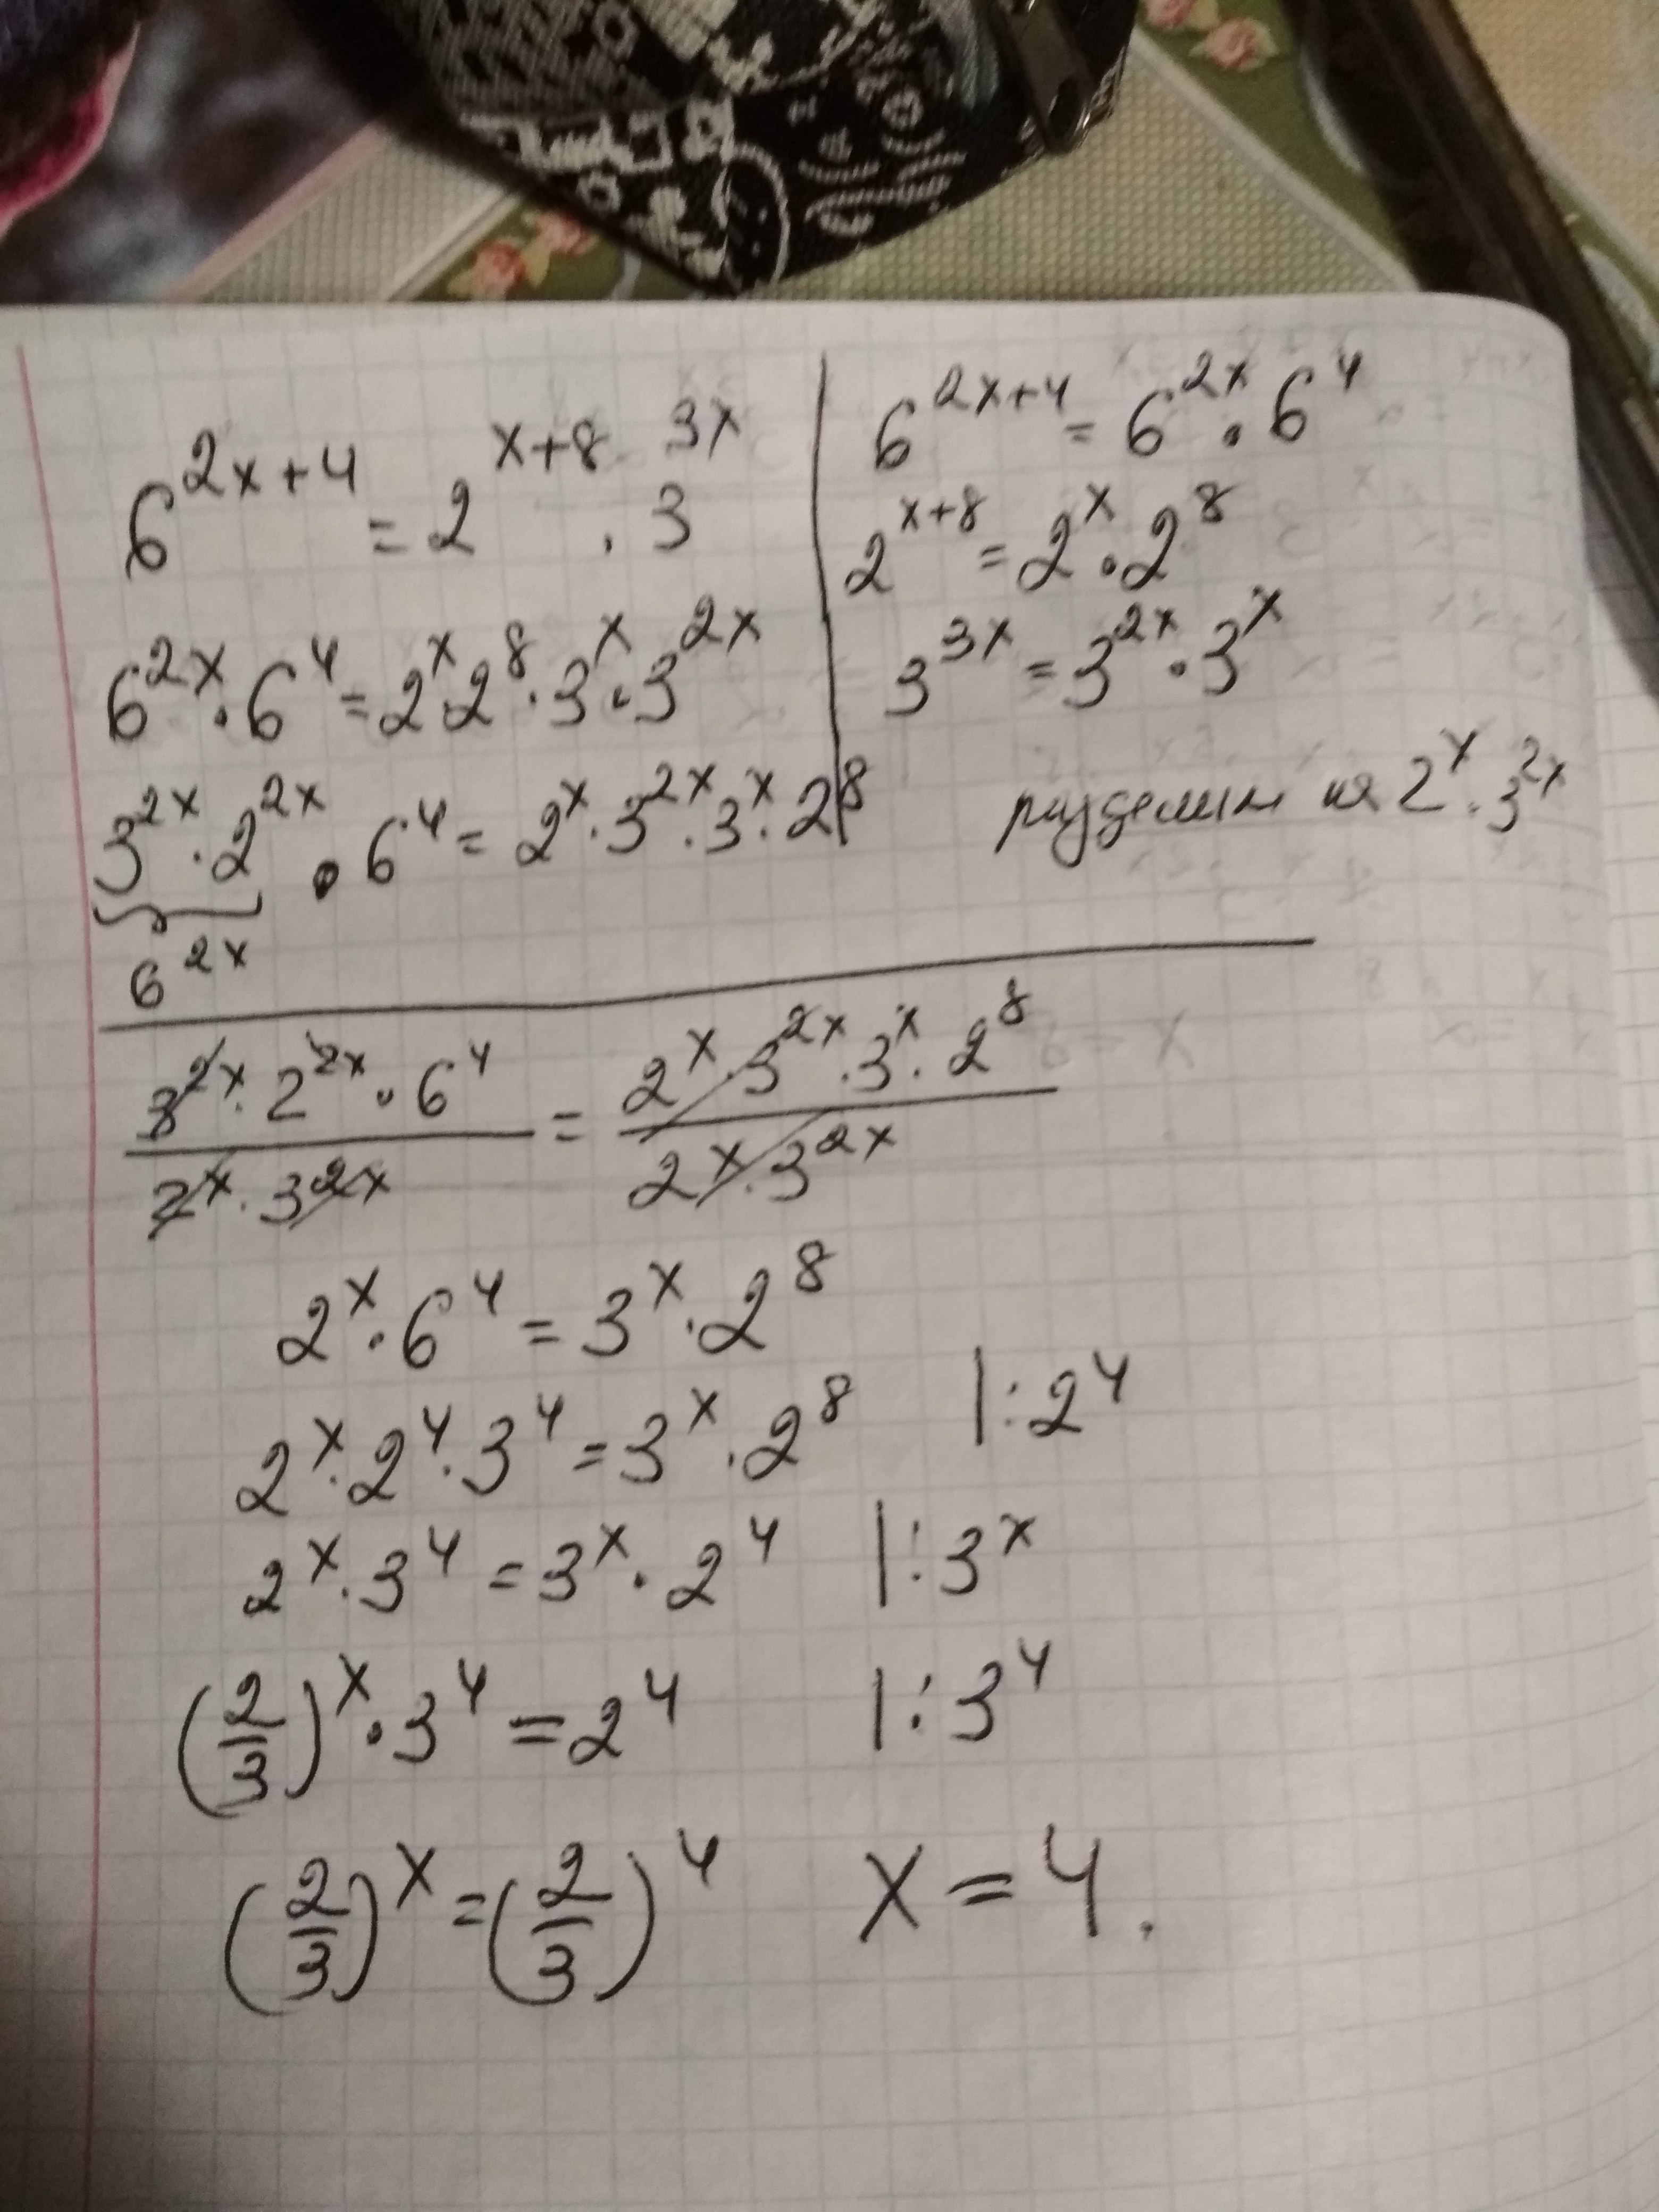 6^{2x+4} = 2^{x+8} . 3^{3x}
6^{2x} · 6^4 = 2^x · 2^8 · 3^x · 3^{2x}
3^{2x} · 2^{2x} · 6^4 = 2^x · 3^{2x} · 3^x · 2^8
6^{2x}
6^{2x+4} = 6^{2x} · 6^4
2^{x+8} = 2^x · 2^8
3^{3x} = 3^{2x} · 3^x
разделим на 2^x · 3^{2x}
\frac{3^{2x} · 2^{2x} · 6^4}{2^x · 3^{2x}} = \frac{2^x · 3^{2x} · 3^x · 2^8}{2^x · 3^{2x}}
2^x · 6^4 = 3^x · 2^8
2^x · 2^4 · 3^4 = 3^x · 2^8 |: 2^4
2^x · 3^4 = 3^x · 2^4 |: 3^x
(\frac{2}{3})^x · 3^4 = 2^4 |: 3^4
(\frac{2}{3})^x = (\frac{2}{3})^4 x = 4.